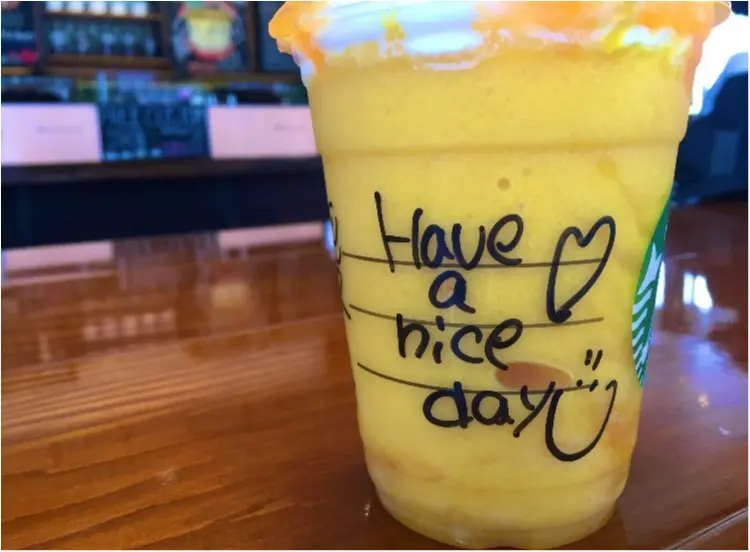 Have
a
nice
day